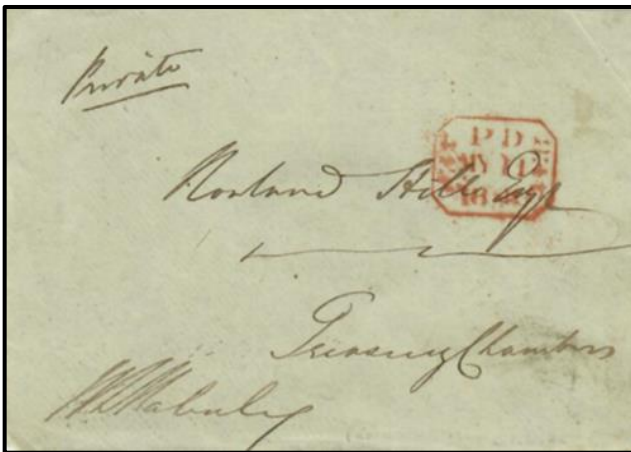 Private
P D
MY 11
Rowland Hill Esqr
Treasury Chambers